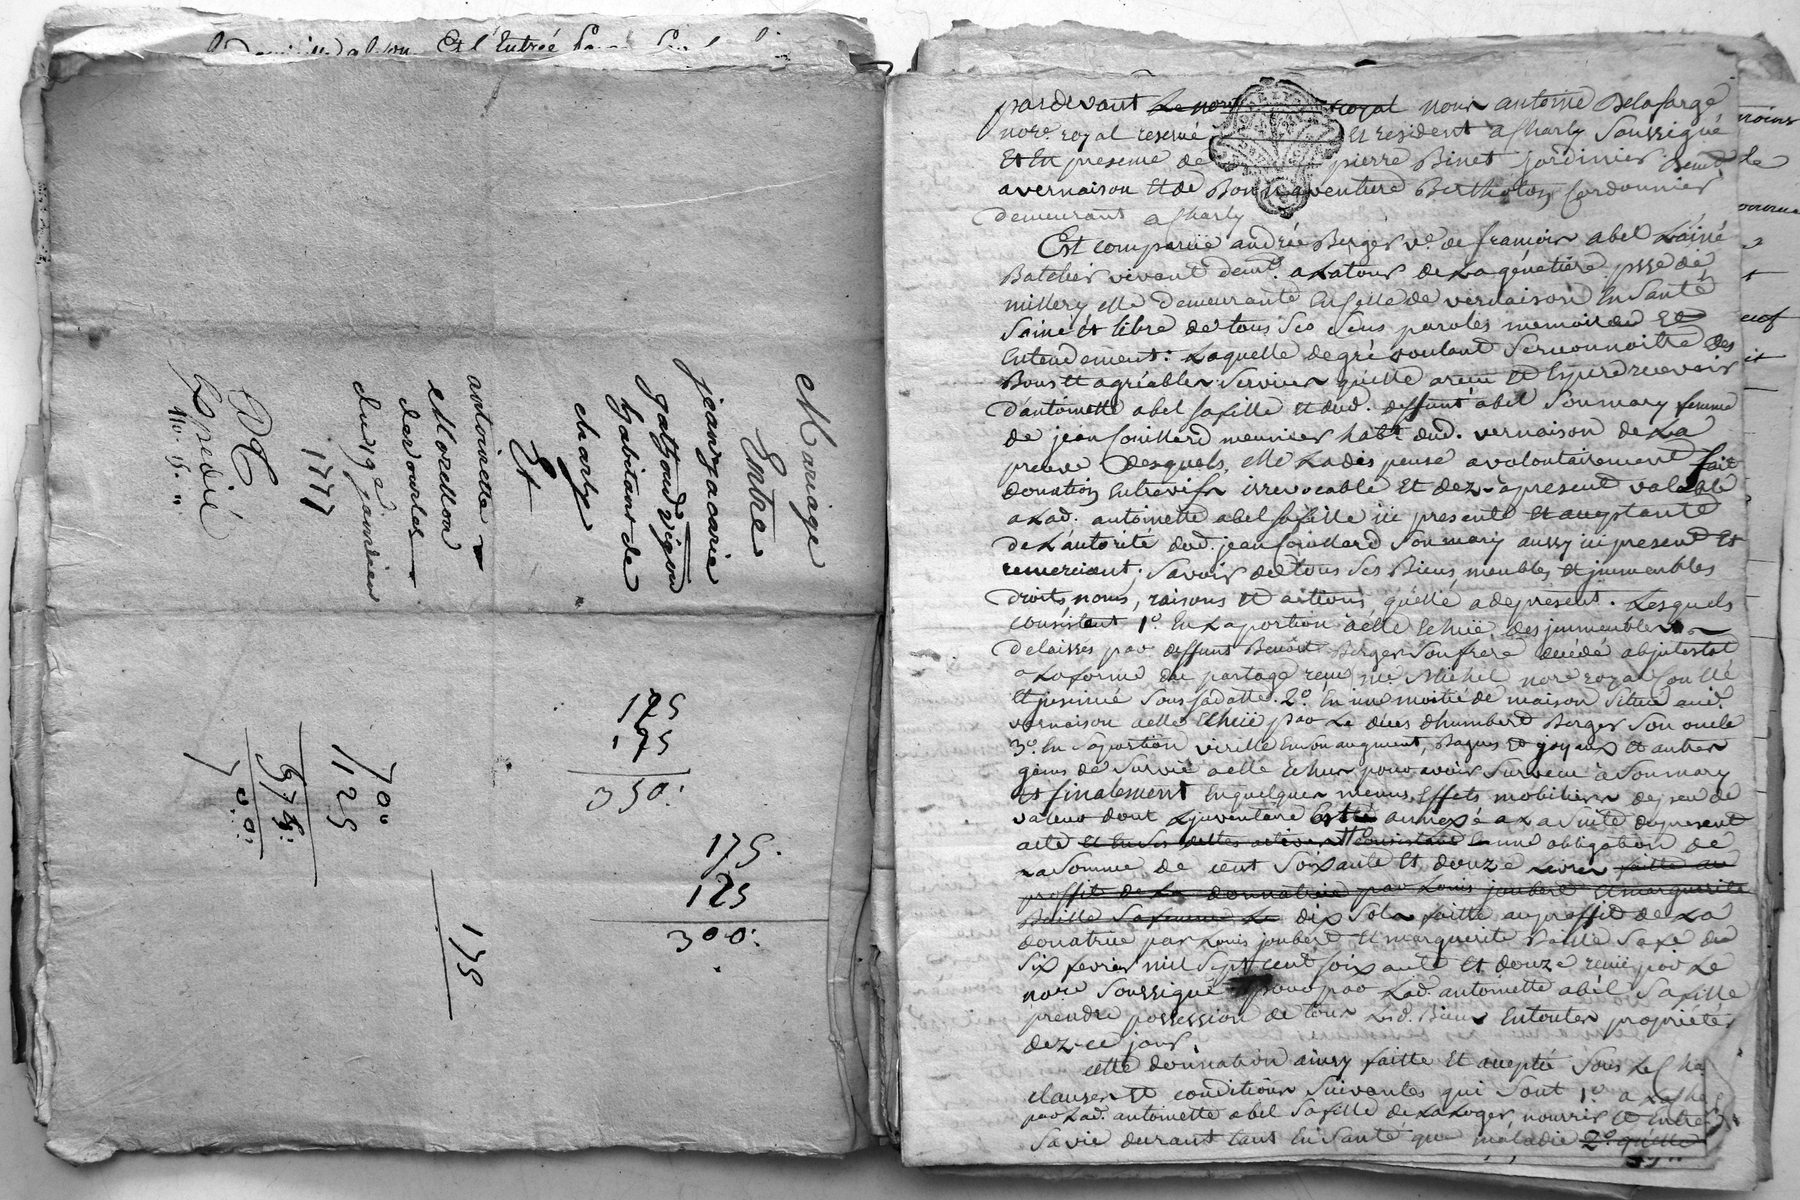 Mariage
Entre
jean zacarie
gatjoud vigou
habitant de
charly
Et
antoinette
Morellon
des ourles
du 19e janvier
1777
Expedié
175
175
350:
175.
125
300:
700
125
575:
700:
175
pardevant Le nore royal nous antoine Delafarge
nore royal reservé Et resident a Charly Soussigné
Et En presence de pierre Binet jardinier Demt
a vernaison Et de Bonnaventure Bertholon Cordonnier
demeurant a Charly
Est comparüe andrée Berger ve. de francois abel L'ainé
Batelier vivant demt. a Latour de La génetiere psse de
millery elle demeurante En celle de vernaison En Santé
Saine Et libre de tous Ses Sens paroles memoire Et
Entendement: Laquelle de gré voulant reconnoitre des
Bons Et agréables Services qu'elle a reçu Et Espere recevoir
d'antoinette abel Sa fille Et dud. deffunt abel Son mary femme
de jean Couillard meunier habt. dud. vernaison de La
preuve desquels, elle La dispense a volontairement fait
donation Entrevifs irrevocable Et dez-apresent valable
a Lad. antoinette abel Sa fille ici presente Et acceptante
de L'autorité dud. jean Couillard Son mary aussy ici present Et
remerciant; Savoir de tous Ses Biens meubles Et immeubles
droits noms, raisons Et actions, qu'elle a de present. Lesquels
consistent 1o. En La portion a elle Echüe des immeubles
delaissés par deffunt Benoit Berger Son frere decedé abjntestat
a La forme du partage reçu me. Michel nore royal
Sous Sa datte. 2o. En une moitié de maison Située aud.
vernaison a elle Echüe par Le deces d'humbert Berger Son oncle
3o. En Sa portion virille En Son augment, Bagues Et joyaux Et autres
gains de Survie a elle Echus pour avoir Survecu à Son mary
Et finalement En quelques menus Effets mobiliers de peu de
valeur dont L'jnventaire Est annexé a La Suite du present
acte Et En Ses dettes actives Consistant En une obligation de
La Somme de cent Soixante Et douze Livres faitte au
proffit de La donnatrice par Louis joubert Et marguerite
Baille Sa femme Le dix Sols faitte au proffit de La
donatrice par Louis joubert Et marguerite Baille Sa fe du
Six fevrier mil Sept cent Soixante Et douze reçue par Le
nore Soussigné pour par Lad. antoinette abel Sa fille
prendre possession de tous Lesd. Biens En toutes proprietés
dez-ce jour.
cette donnation ainsy faitte Et acceptée Sous Les Cha
clauses Et conditions Suivantes qui Sont 1o. a La Cha
par Lad. antoinette abel Sa fille de La Loger, nourrir Et Entre
Sa vie durant tant En Santé que maladie 2o. qu'elle